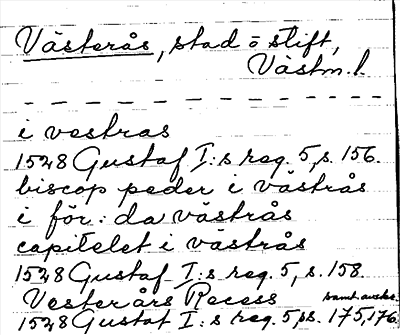 Västerås, stad o stift,
Västm.l.
i vestras
1528 Gustaf I:s reg. 5, s. 156.
biscop peder i västrås
i för: da västrås
capitelet i västrås
1528 Gustaf I:s reg. 5, s. 158.
Vesterårs Recess
1528 Gustaf I: s reg. 5, ss. 175, 176.